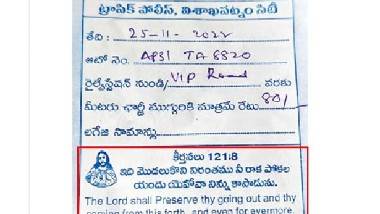 ట్రాఫిక్ పోలీస్, విశాఖపట్నం సిటీ
తేది : 25-11-2022
ఆటో నెం. AP31 TA 6820
రైల్వేస్టేషన్ నుండి VIP Road వరకు
మీటరు ఛార్జీ ముగ్గురికి మాత్రమే రేటు 80/
లగేజి సామాన్లు
కీర్తనలు 121:8
ఇది మొదలుకొని నిరంతరము నీ రాక పోకల
యందు యెహోవా నిన్ను కాపాడును.
The Lord shall Preserve thy going out and thy
coming from this forth, and even for evermore.